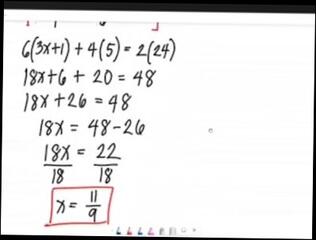 6(3x+1) + 4(5) = 2(24)
18x + 6 + 20 = 48
18x + 26 = 48
18x = 48 - 26
18x = 22
18 18
x = 11
9